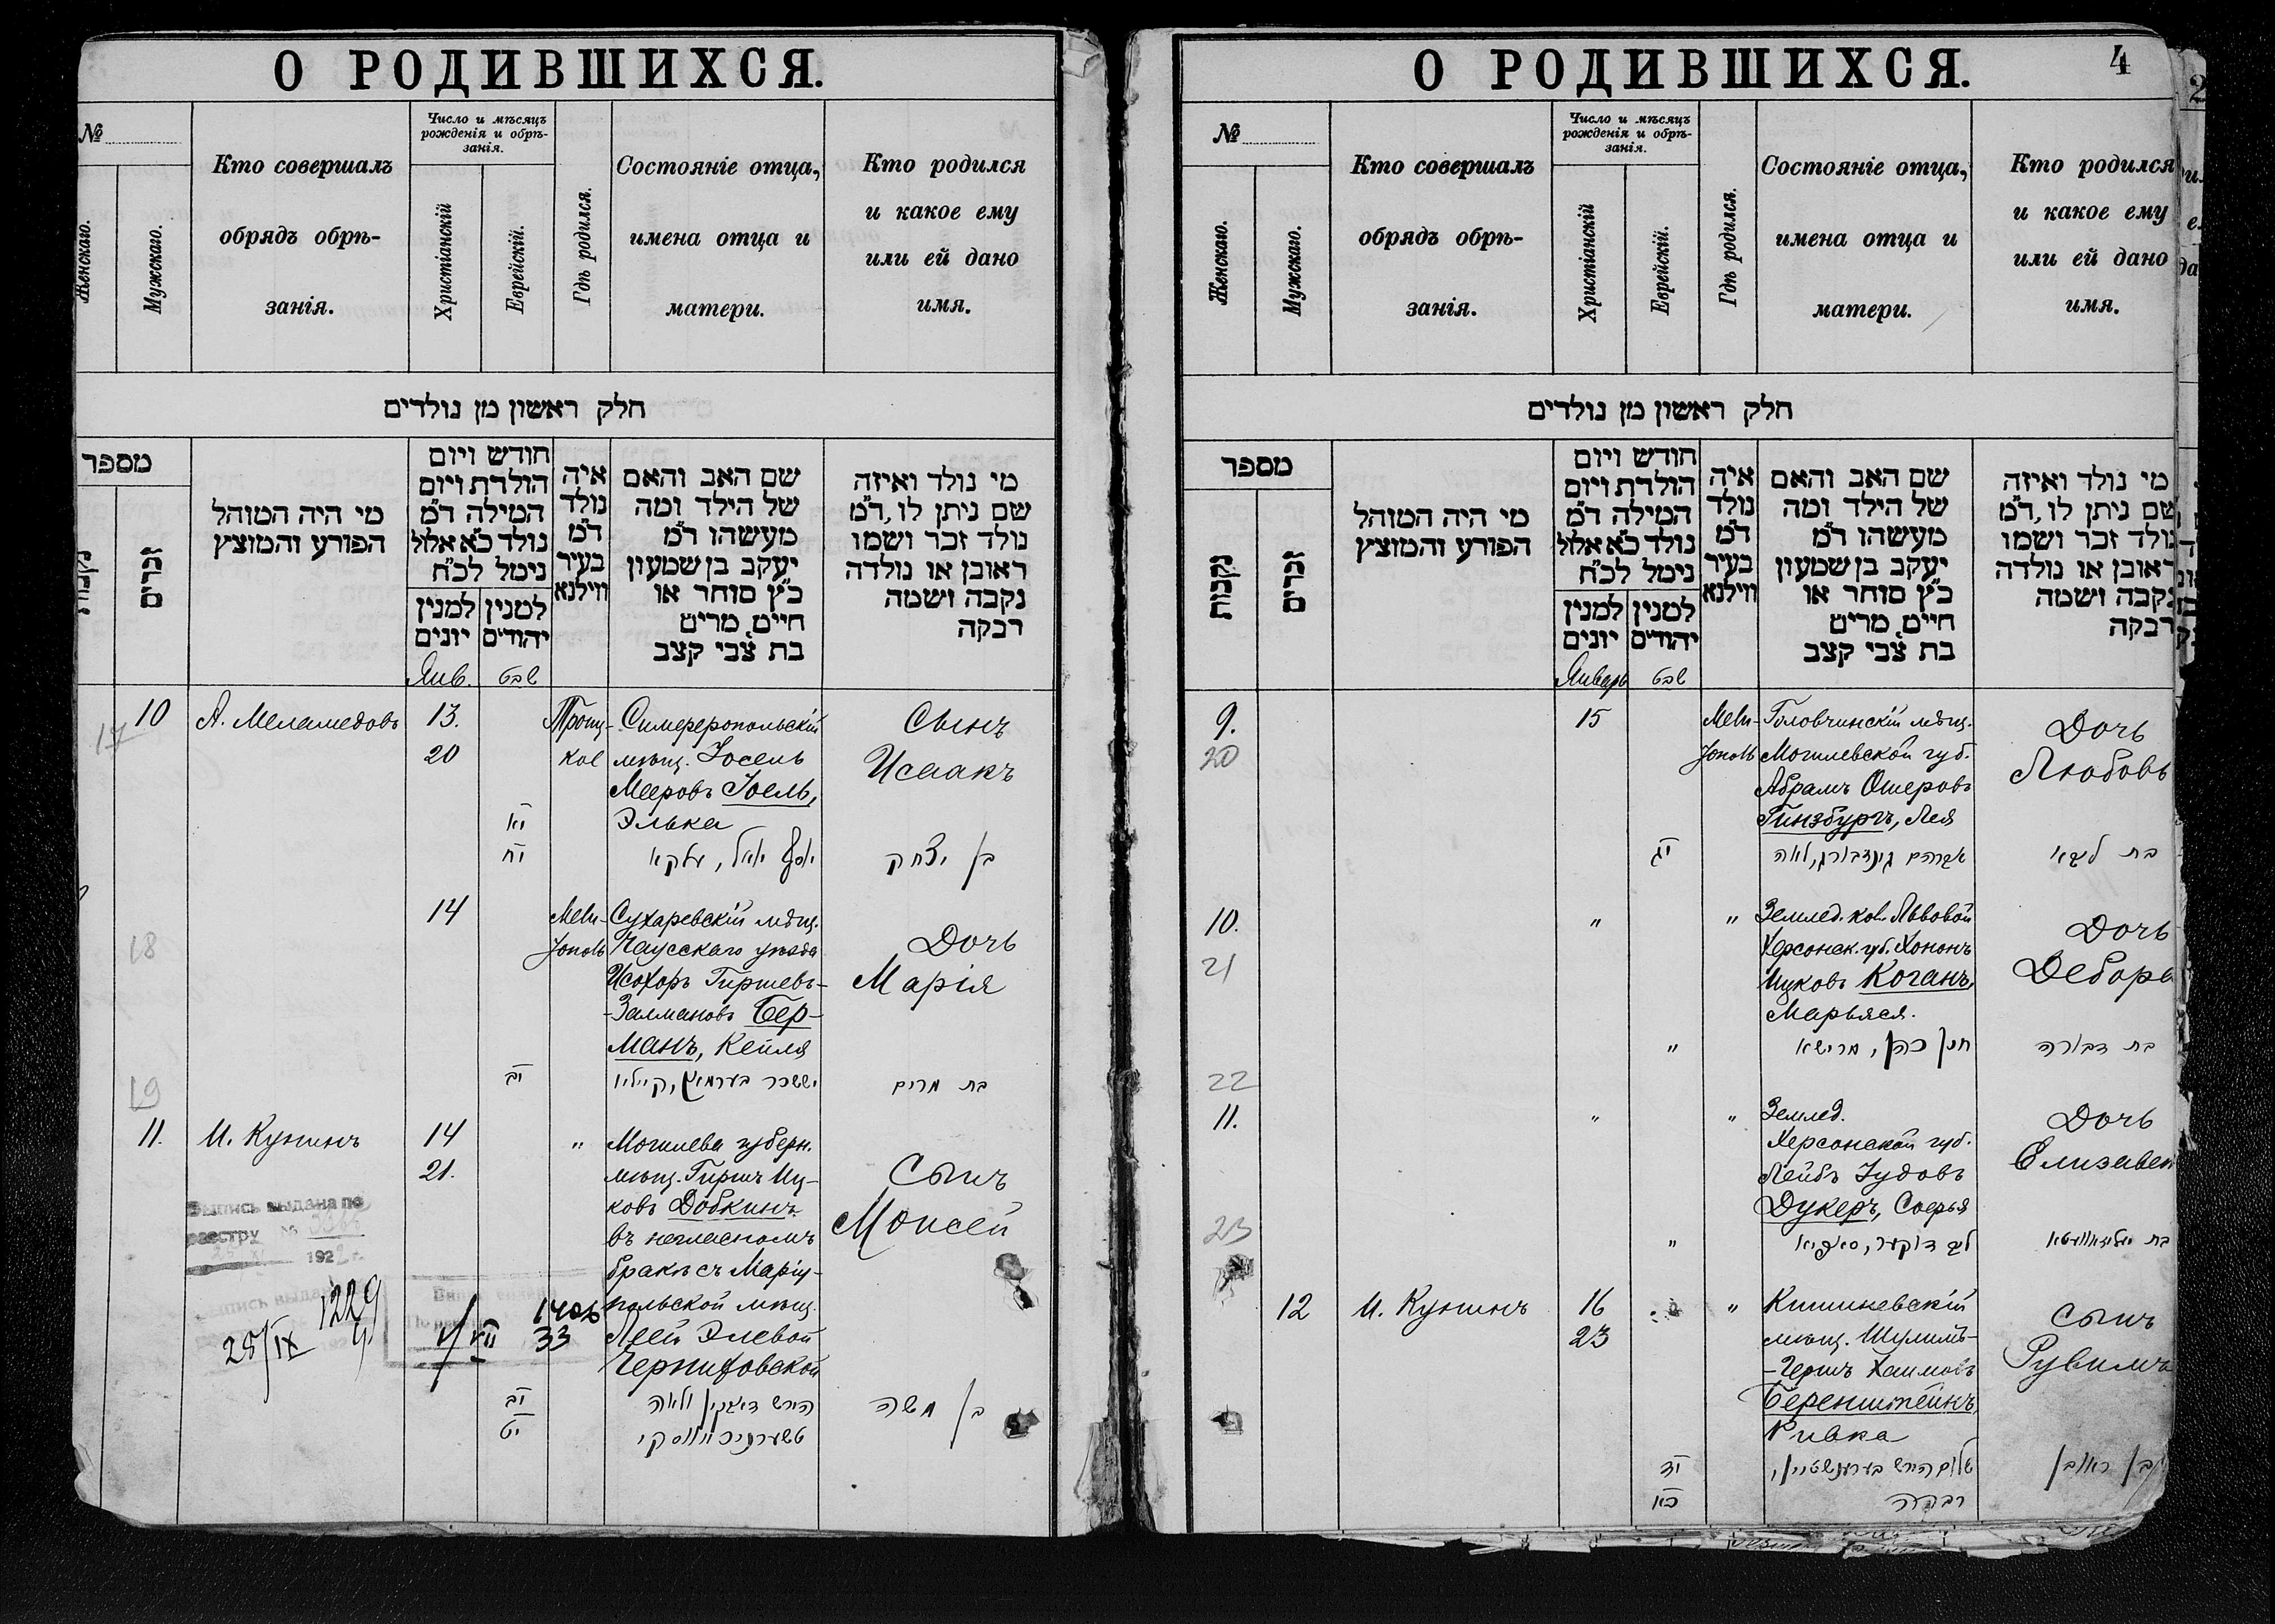 О РОДИВШИХСЯ.
№
Женскаго.
Мужскаго.
Кто совершалъ
обрядъ обрѣ-
занія.
Число и мѣсяцъ
рожденія и обрѣ-
занія.
Христіанскій
Еврейскій.
Гдѣ родился.
Состояніе отца,
имена отца и
матери.
Кто родился
и какое ему
или ей дано
имя.
חלק ראשון מן נולדים
מספר
זכרים
מי היה המוהל
הפורע והמוצץ
חודש ויום
הולדת ויום
המילה ד״מ
נולד כ״א אלול
נימל לכ״ח
למנין יונים
למנין יהודים
איה
נולד
ד״מ
בעיר
ווילנא
שם האב והאם
של הילד ומה
מעשהו ד״מ
יעקב בן שמעון
כ״ץ סוחר או
חייט, מרים
בת צבי קצב
מי נולד ואיזה
שם ניתן לו, ד״מ
נולד זכר ושמו
ראובן או נולדה
נקבה ושמה
רבקה
Янв. שבט
17
10 А. Меламедовъ 13. Троиц- Симферопольскій Сынъ
20 кое мѣщ. Іосель Исаакъ
Мееровъ Іоель,
יא Элька
יח יוסף יואל, עלקא בן יצחק
14 Мели- Сухаревскій мѣщ. Дочь
18 тополь Чаусскаго уѣзда Марія
Исохоръ Гиршевъ-
-Залмановъ Бер-
манъ, Кейля
יב יששכר בערמאן, קיילא בת מרים
19
11. И. Кунинъ 14 " Могилева губерн. Сынъ
21. мѣщ. Гиршъ Иц- Моисей
ковъ Добкинъ
въ негласномъ
бракѣ съ Маріу-
польской мѣщ.
Леей Элевой
Черниховской
Выпись выдана по
реестру №
192 г.
28/IX 1229
V/VII 33
יב הירש דאבקין ולאה בן משה
יט
О РОДИВШИХСЯ.
4
№
Женскаго.
Мужскаго.
Кто совершалъ
обрядъ обрѣ-
занія.
Число и мѣсяцъ
рожденія и обрѣ-
занія.
Христіанскій
Еврейскій.
Гдѣ родился.
Состояніе отца,
имена отца и
матери.
Кто родился
и какое ему
или ей дано
имя.
חלק ראשון מן נולדים
מספר
נקבות
זכרים
מי היה המוהל
הפורע והמוצץ
חודש ויום
הולדת ויום
המילה ד״מ
נולד כ״א אלול
נימל לכ״ח
למנין יונים
למנין יהודים
איה
נולד
ד״מ
בעיר
ווילנא
שם האב והאם
של הילד ומה
מעשהו ד״מ
יעקב בן שמעון
כ״ץ סוחר או
חייט, מרים
בת צבי קצב
מי נולד ואיזה
שם ניתן לו, ד״מ
נולד זכר ושמו
ראובן או נולדה
נקבה ושמה
רבקה
Январь שבט
9. 15 Мели- Головчинскій мѣщ. Дочь
20 тополь Могилевской губ. Любовь
Абрамъ Ошеровъ
Гинзбургъ, Лея
יג אברהם גינזבורג, לאה בת ליבא
10. " " Землед. кол. Львовой Дочь
21 Херсонск. губ. Хононъ Дебора
Ицковъ Коганъ,
Марьяся.
" חנן כהן, מרישא בת דבורה
22
11. " " Землед. Дочь
Херсонской губ. Елизавет
Лейбъ Іудовъ
Дукеръ, Софья
23
" ליב דוקער, סאפיא בת
12 И. Кунинъ 16 " Кишиневскій Сынъ
23 мѣщ. Шулимъ- Рувимъ
-Гершъ Хаимовъ
Беренштейнъ,
Ривка
יד שלום הירש בערענשטיין, בן ראובן
כא רבקה